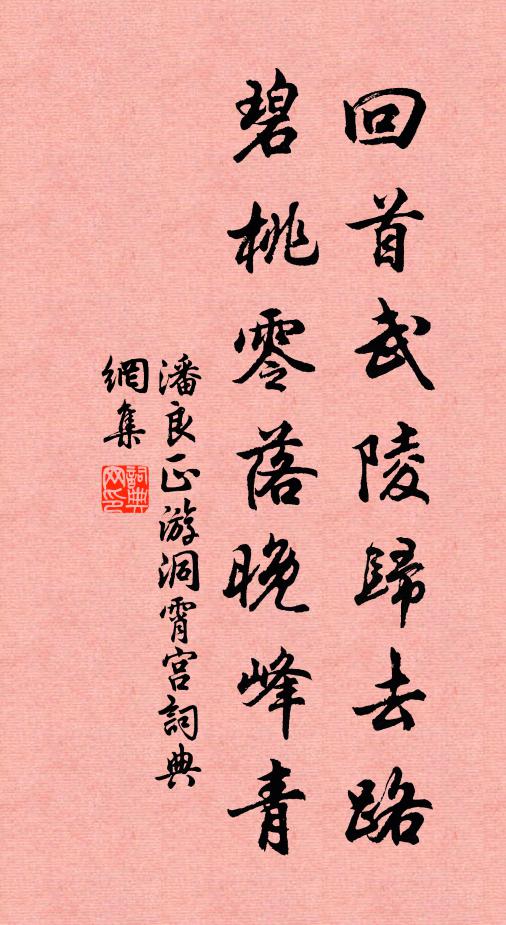 回首武陵歸去路
碧桃零落晚峰青
潘良正游洞霄宫詞典
網集
詞典
网印